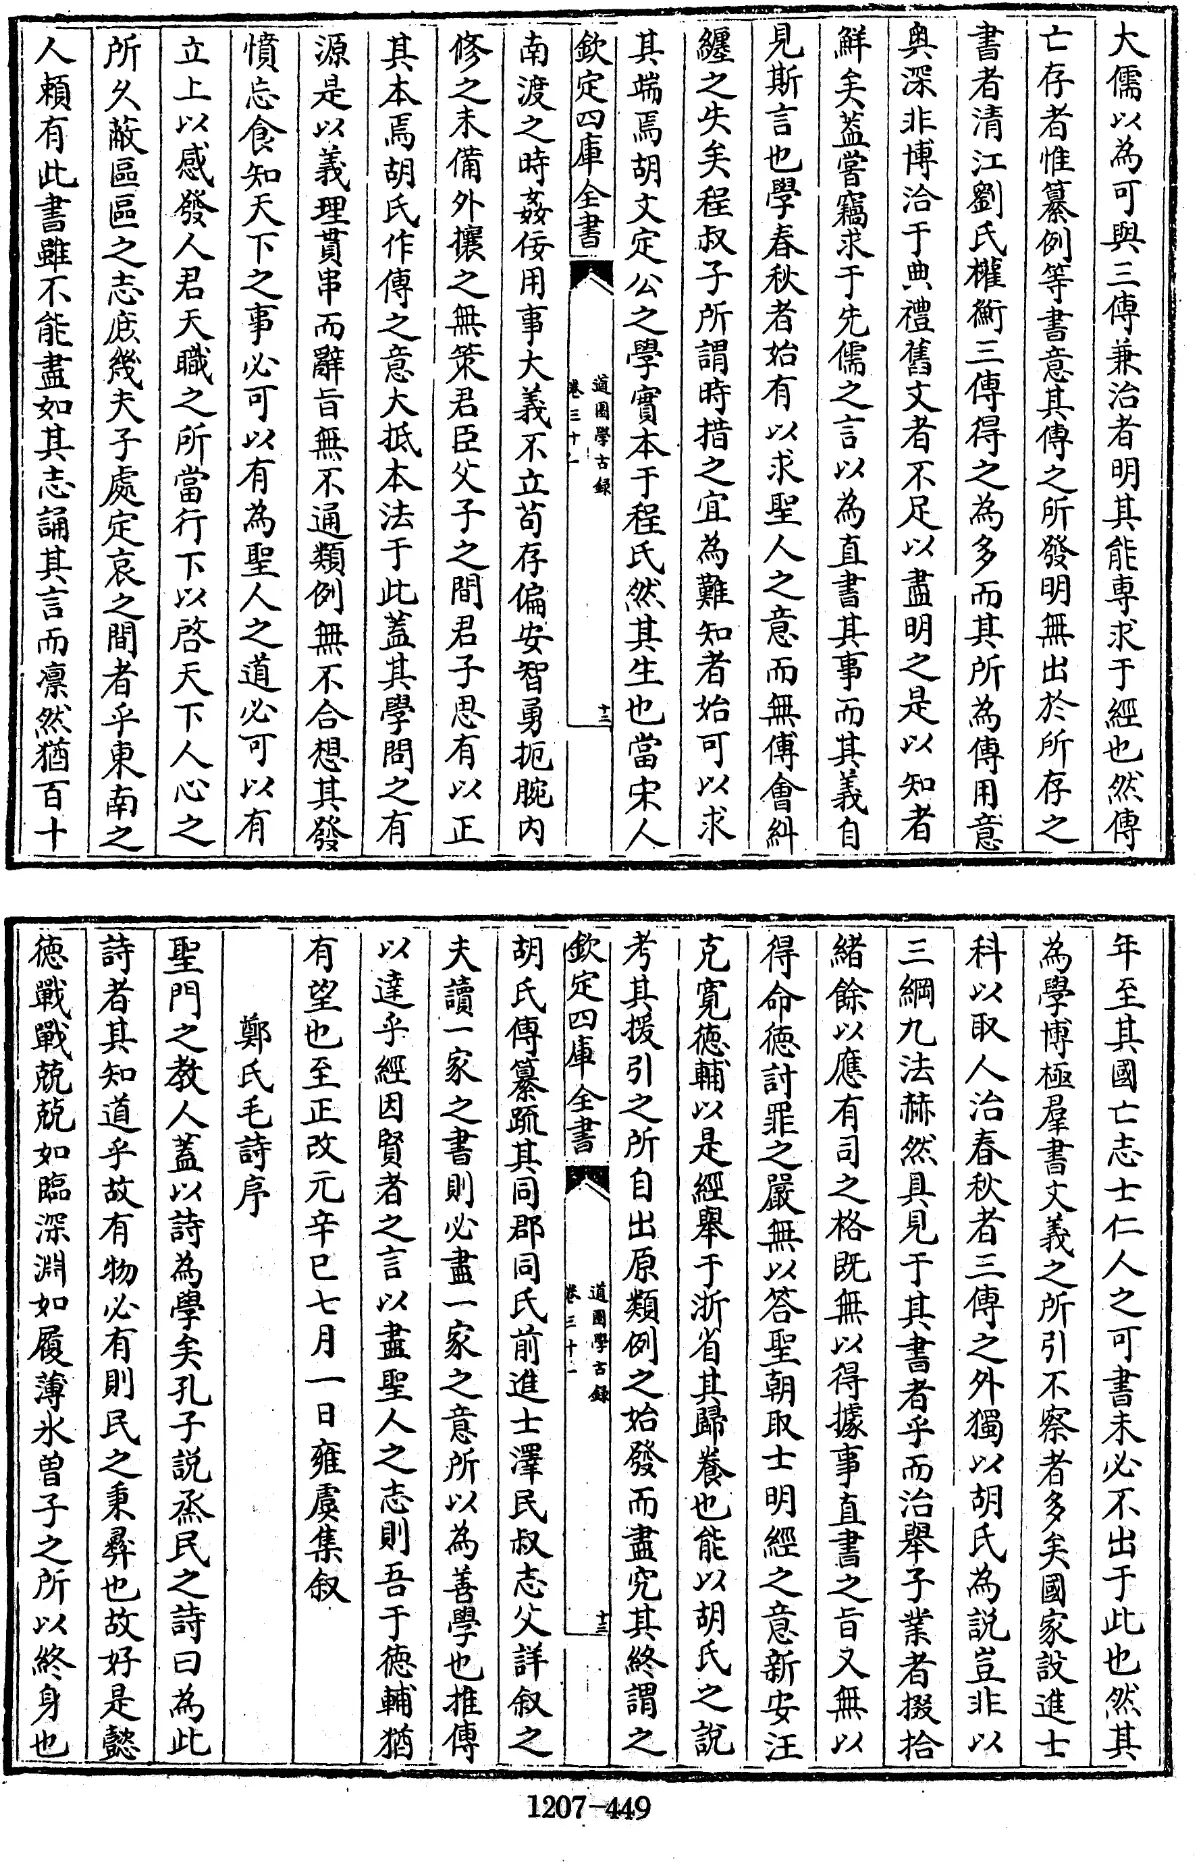 大儒以為可與三傳兼治者明其能専求于經也然傳
亡存者惟纂例等書意其傳之所發明無出於所存之
書者清江劉氏權衡三傳得之為多而其所為傳用意
奥深非博洽于典禮舊文者不足以盡明之是以知者
鮮矣葢嘗竊求于先儒之言以為直書其事而其義自
見斯言也學春秋者始有以求聖人之意而無傅會糾
纒之失矣程叔子所謂時措之宜為難知者始可以求
其端焉胡文定公之學實本于程氏然其生也當宋人
欽定四庫全書
道園學古録
卷三十一
十二
南渡之時姦佞用事大義不立苟存偏安智勇扼腕内
修之未備外攘之無策君臣父子之間君子思有以正
其本焉胡氏作傳之意大抵本法于此葢其學問之有
源是以義理貫串而辭旨無不通類例無不合想其發
憤忘食知天下之事必可以有為聖人之道必可以有
立上以感發人君天職之所當行下以啓天下人心之
所久蔽區區之志庶幾夫子處定哀之間者乎東南之
人賴有此書雖不能盡如其志誦其言而凛然猶百十
年至其國亡志士仁人之可書未必不出于此也然其
為學博極羣書文義之所引不察者多矣國家設進士
科以取人治春秋者三傳之外獨以胡氏為説豈非以
三綱九法赫然具見于其書者乎而治舉子業者掇拾
緒餘以應有司之格既無以得據事直書之旨又無以
得命徳討罪之嚴無以答聖朝取士明經之意新安汪
克寛徳輔以是經舉于浙省其歸養也能以胡氏之説
考其援引之所自出原類例之始發而盡究其終謂之
欽定四庫全書
道園學古録
卷三十一
十三
胡氏傳纂疏其同郡同氏前進士澤民叔志父詳叙之
夫讀一家之書則必盡一家之意所以為善學也推傳
以達乎經因賢者之言以盡聖人之志則吾于徳輔猶
有望也至正改元辛巳七月一日雍虞集叙
鄭氏毛詩序
聖門之教人葢以詩為學矣孔子説烝民之詩曰為此
詩者其知道乎故有物必有則民之秉彝也故好是懿
徳戰戰兢兢如臨深淵如履薄氷曽子之所以終身也
1207-449